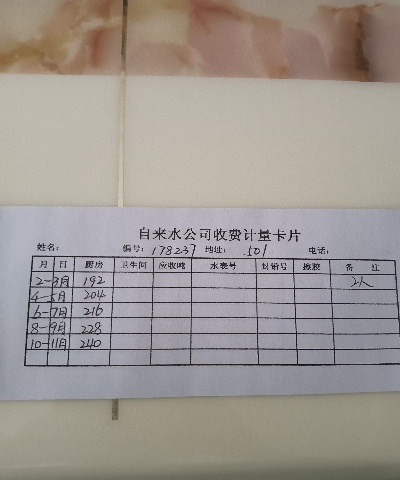 自来水公司收费计量卡片
姓名: 编号: 178237 地址: 501 电话:
月 日 厨房 卫生间 应收吨 水表号 封铅号 换胶 备 注
2-3月 192 2人
4-5月 204
6-7月 216
8-9月 228
10-11月 240